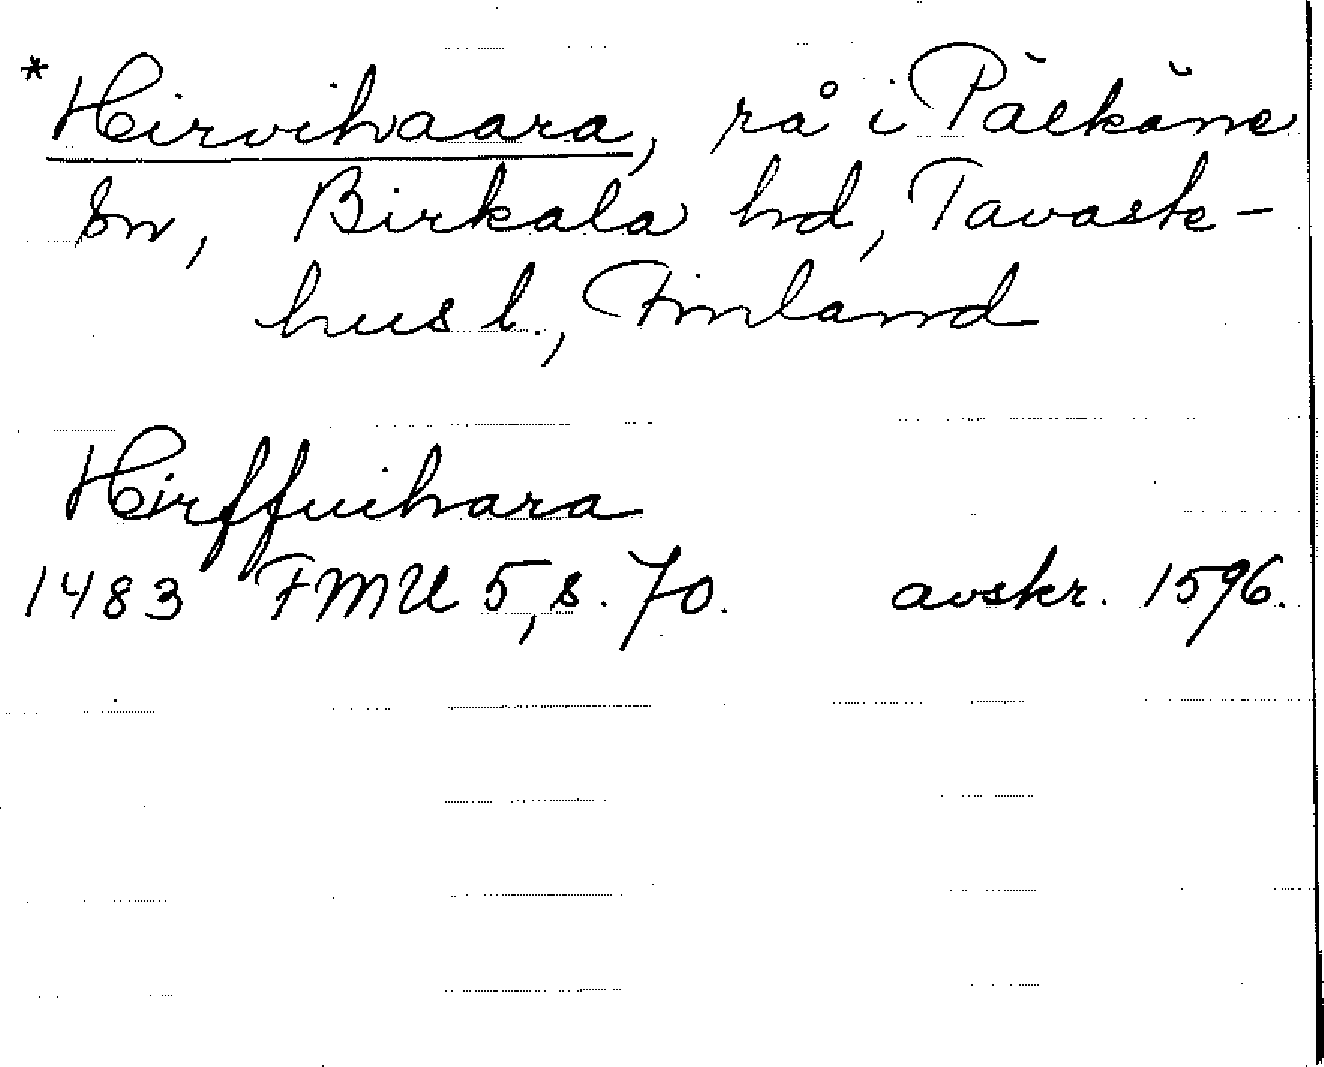 *Hirvihaara, rå i Pälkäne
sn, Birkala hd, Tavaste-
hus l., Finland
Hirffuihara
1483 FMU 5, s. 70. avskr. 1596.